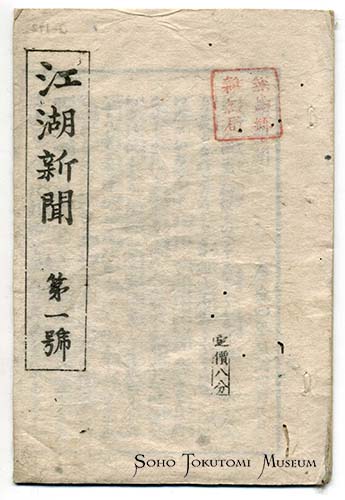 江湖新聞 第一號
定價八分
SOHO TOKUTOMI MUSEUM